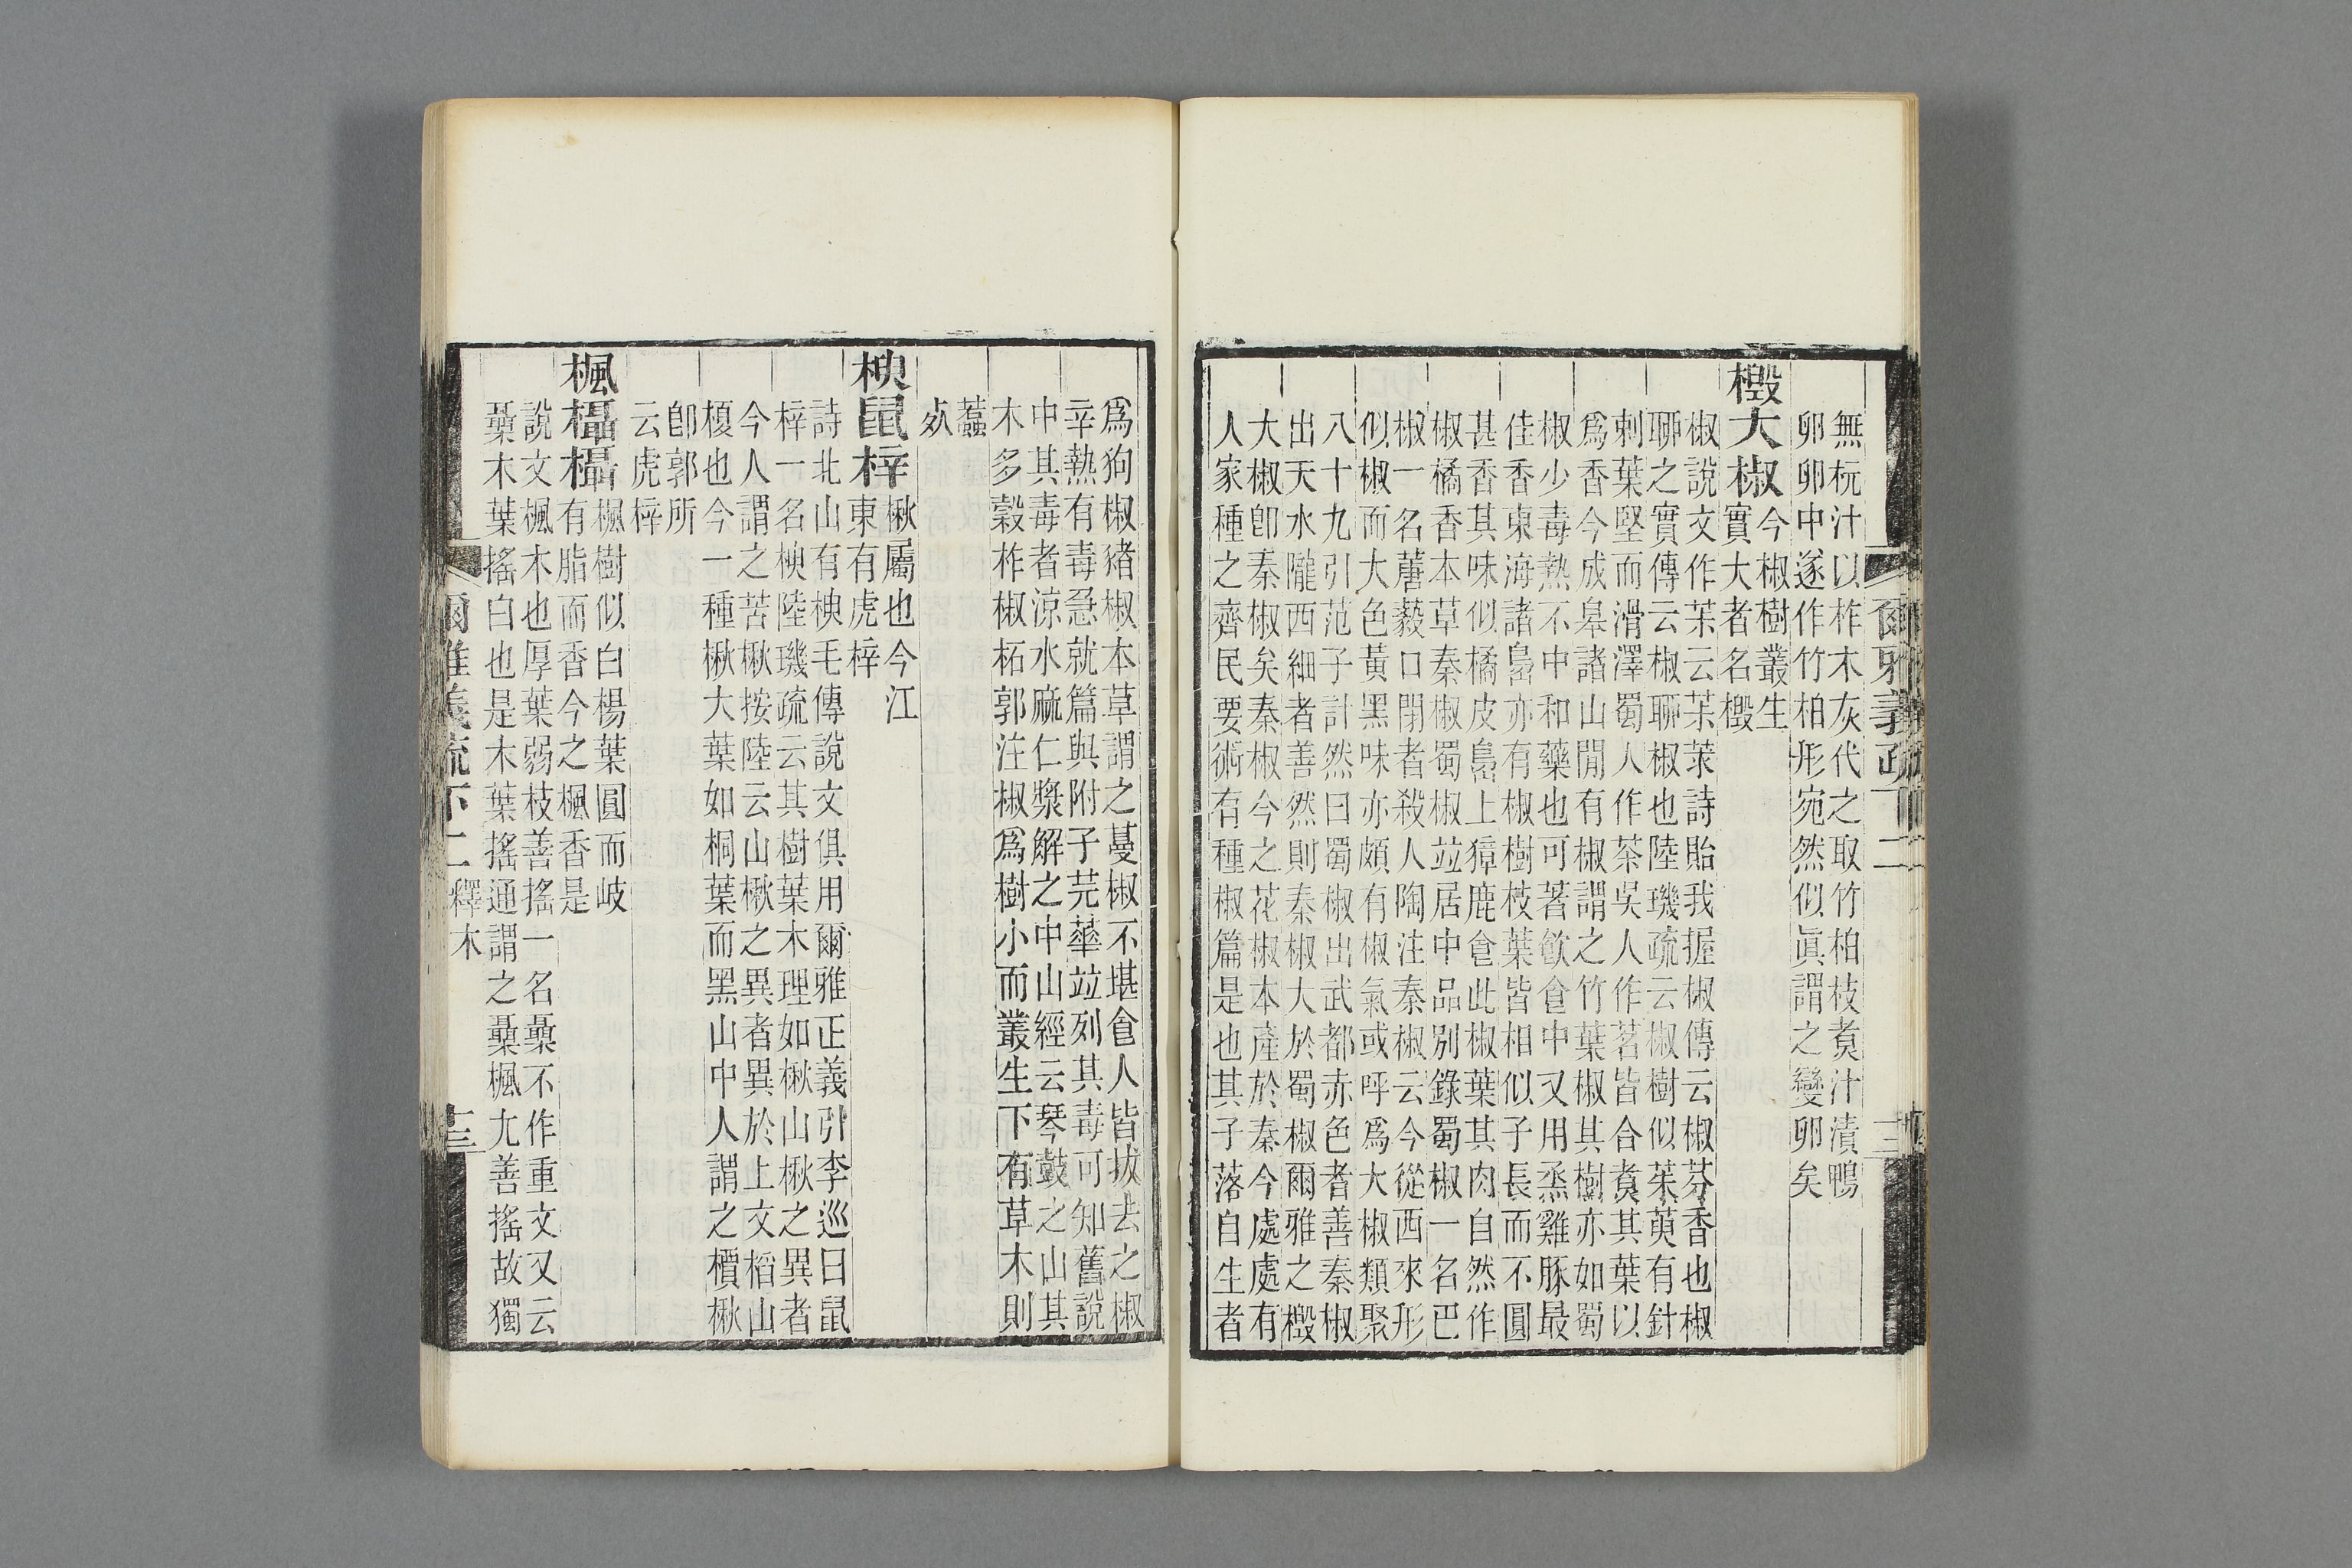 無杬汁以柞木灰代之取竹柏枝煑汁漬鴨
卵卵中遂作竹柏形宛然似眞謂之變卵矣
檓大椒
今椒樹叢生
實大者名檓
椒說文作茮云茮莍詩貽我握椒傳云椒芬香也椒
聊之實傳云椒聊椒也陸璣疏云椒樹似茱萸有針
刺葉堅而滑澤蜀人作茶吳人作茗皆合煑其葉以
爲香今成皋諸山閒有椒謂之竹葉椒其樹亦如蜀
椒少毒熱不中和藥也可著飮㑹中又用烝雞豚最
佳香東海諸島亦有椒樹枝葉皆相似子長而不圓
甚香其味似橘皮島上獐鹿㑹此椒葉其肉自然作
椒橘香本草秦椒蜀椒竝居中品別錄蜀椒一名巴
椒一名蓎藙口閉者殺人陶注秦椒云今從西來形
似椒而大色黃黑味亦頗有椒氣或呼爲大椒類聚
八十九引范子計然曰蜀椒出武都赤色者善秦椒
出天水隴西細者善然則秦椒大於蜀椒爾雅之檓
大椒卽秦椒矣秦椒今之花椒本產於秦今處處有
人家種之齊民要術有種椒篇是也其子落自生者
爲狗椒豬椒本草謂之蔓椒不堪㑹人皆拔去之椒
辛熱有毒急就篇與附子芫華竝列其毒可知舊說
中其毒者涼水麻仁漿解之中山經云琴鼓之山其
木多榖柞椒柘郭注椒爲樹小而叢生下有草木則
蠚
㱾
楰鼠梓
楸屬也今江
東有虎梓
詩北山有楰毛傳說文俱用爾雅正義引李巡曰鼠
梓一名楰陸璣疏云其樹葉木理如楸山楸之異者
今人謂之苦楸按陸云山楸之異者異於上文槄山
榎也今一種楸大葉如桐葉而黑山中人謂之櫝楸
卽郭所
云虎梓
楓欇欇
楓樹似白楊葉圓而岐
有脂而香今之楓香是
說文楓木也厚葉弱枝善搖一名𣡷不作重文又云
𣡷木葉搖白也是木葉搖通謂之𣡷楓尤善搖故獨
爾雅義疏下二 釋木
十三